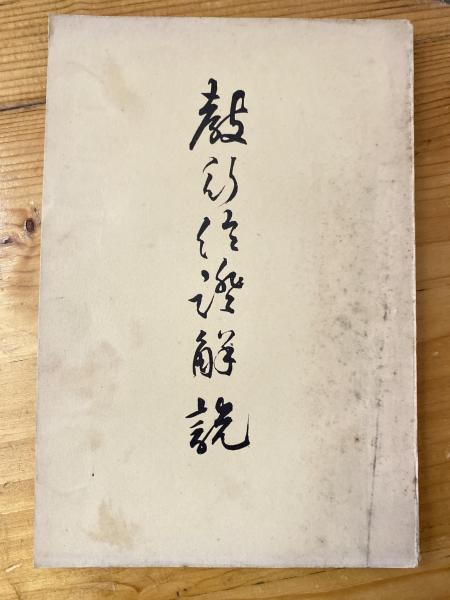 教行信證解説